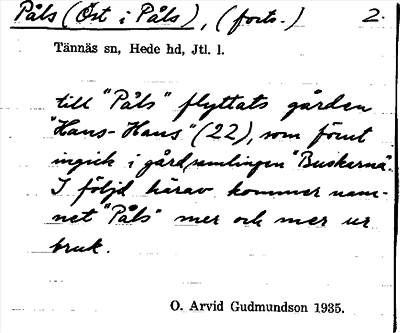 Påls (Öst i Påls), (forts.) 2.
Tännäs sn, Hede hd, Jtl. l.
till "Påls" flyttats gården
"Hans-Hans" (22), som förut
ingick i gårdsamlingen "Buskerna".
I följd härav kommer nam-
net "Påls" mer och mer ur
bruk.
O. Arvid Gudmundson 1935.